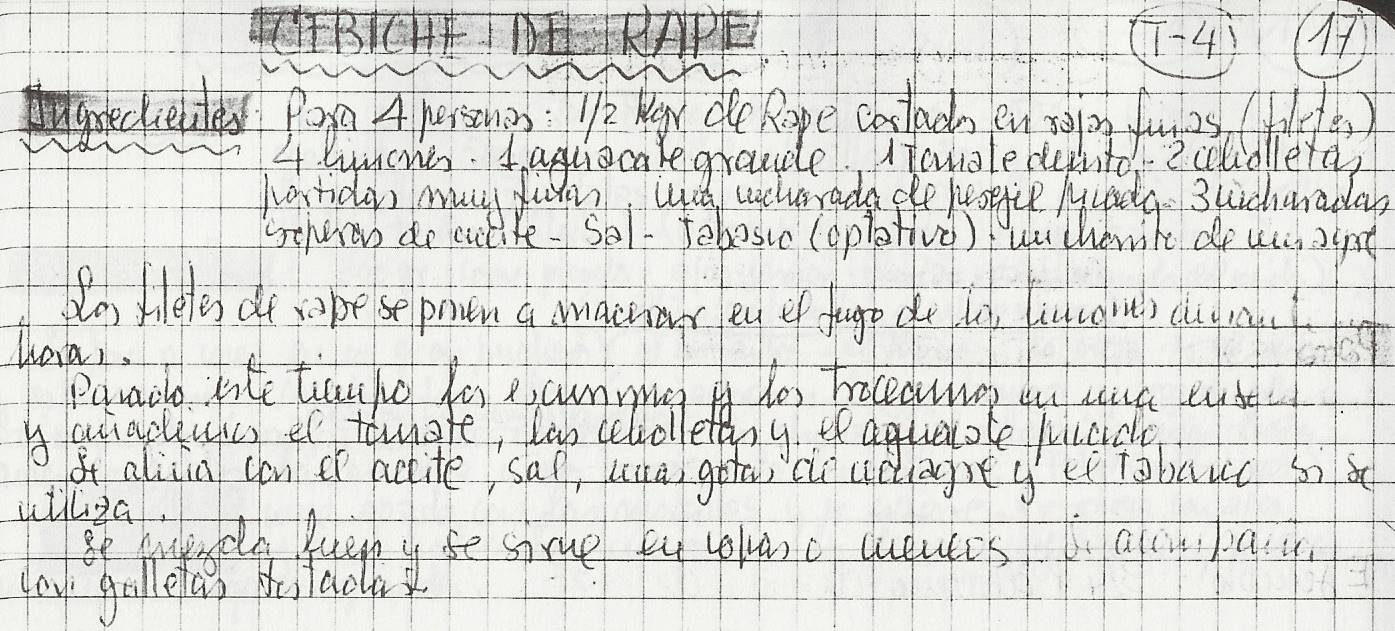 CEBICHE DE RAPE (T-4) (17)
Ingredientes: Para 4 personas: 1/2 Kgr de Rape cortados en rajas finas (filetes)
4 limones - 1 aguacate grande - 1 Tomate durito - 2 cebolletas
partidas muy finas. una cucharada de perejil picado - 3 cucharadas
soperas de aceite - Sal - Tabasco (optativo) - un chorrito de vinagre
Los filetes de rape se ponen a macerar en el jugo de los limones
horas.
Pasado este tiempo los escurrimos y los troceamos en una
y añadimos el tomate, las cebolletas y el aguacate picado.
Se aliña con el aceite, sal, unas gotas de vinagre y el Tabasco si se
utiliza.
Se mezcla bien y se sirve en copas o cuencos. Se acompaña
con galletas tostadas.